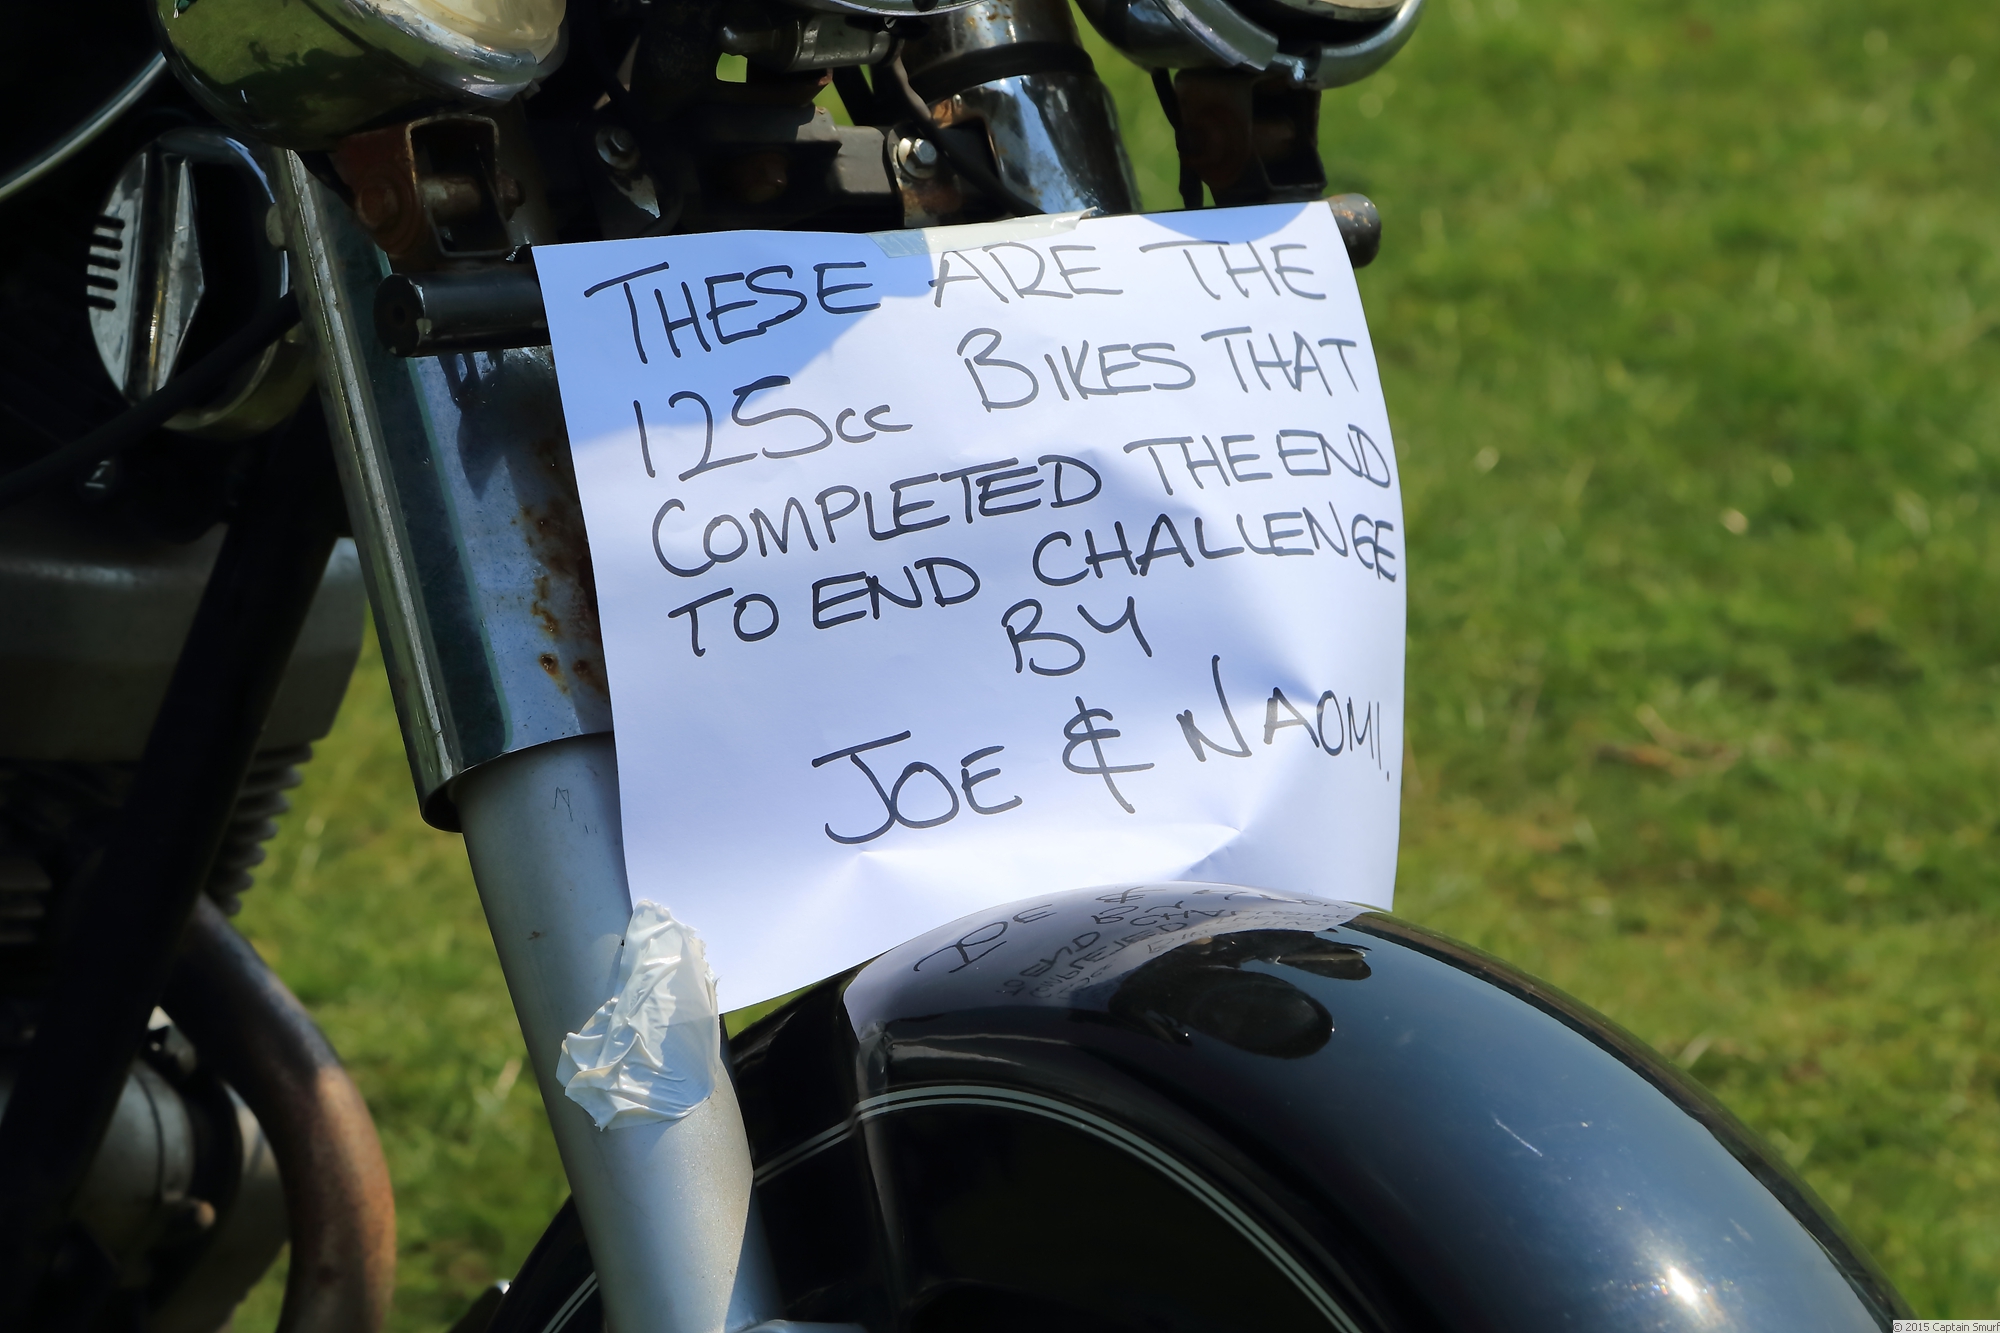 THESE ARE THE
125cc BIKES THAT
COMPLETED THE END
TO END CHALLENGE
BY
JOE & NAOMI.
© 2015 Captain Smurf